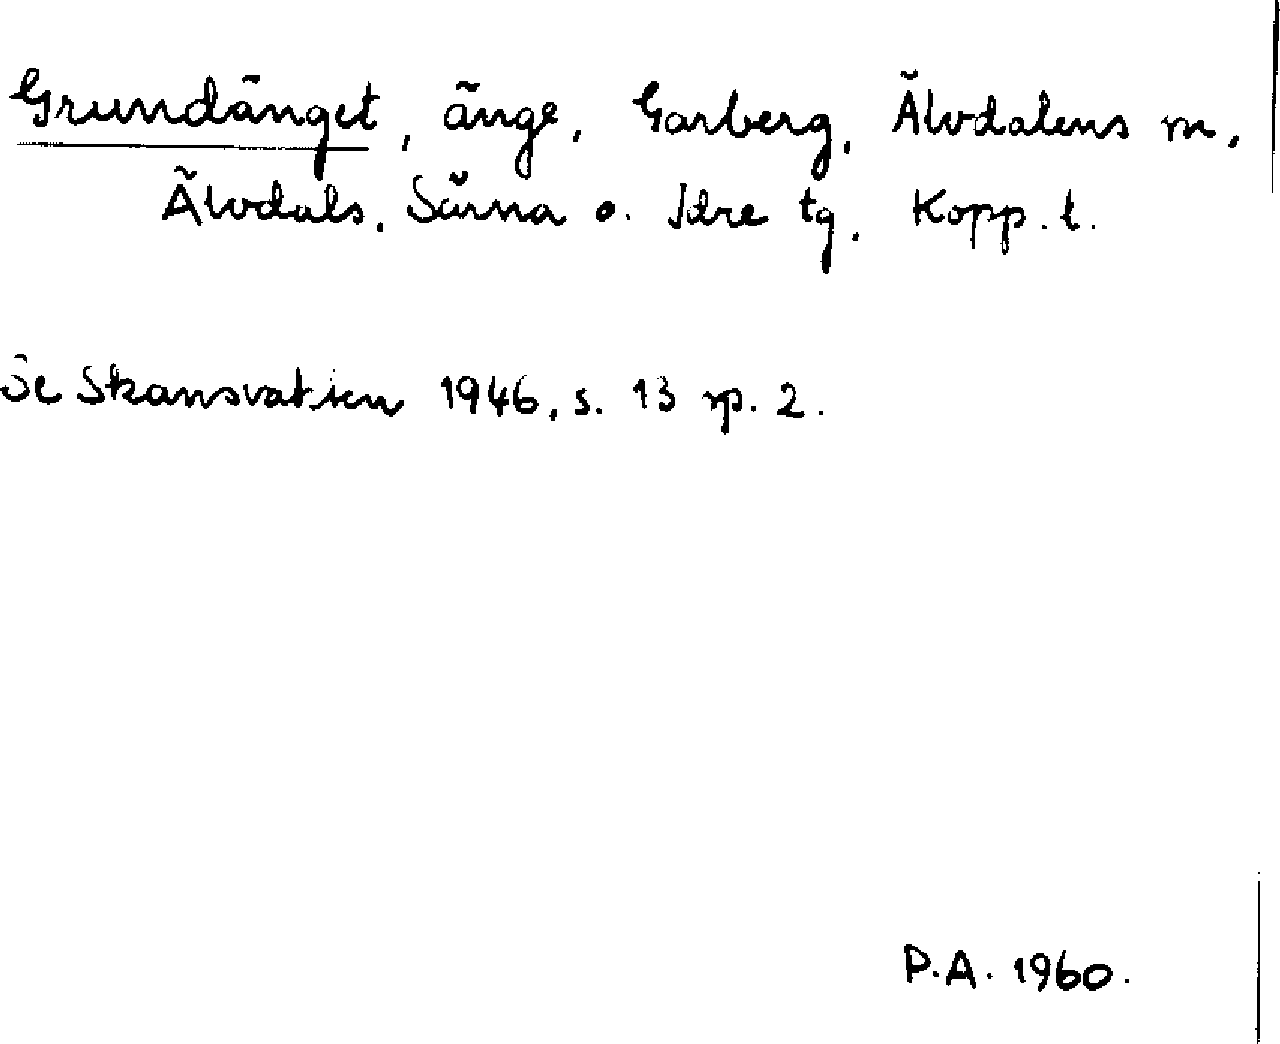 Grundänget, änge, Garberg, Älvdalens m,
Älvdals, Särna o. Idre tg, Kopp. l.
Se Skansvakten 1946, s. 13 sp. 2.
P.A. 1960.